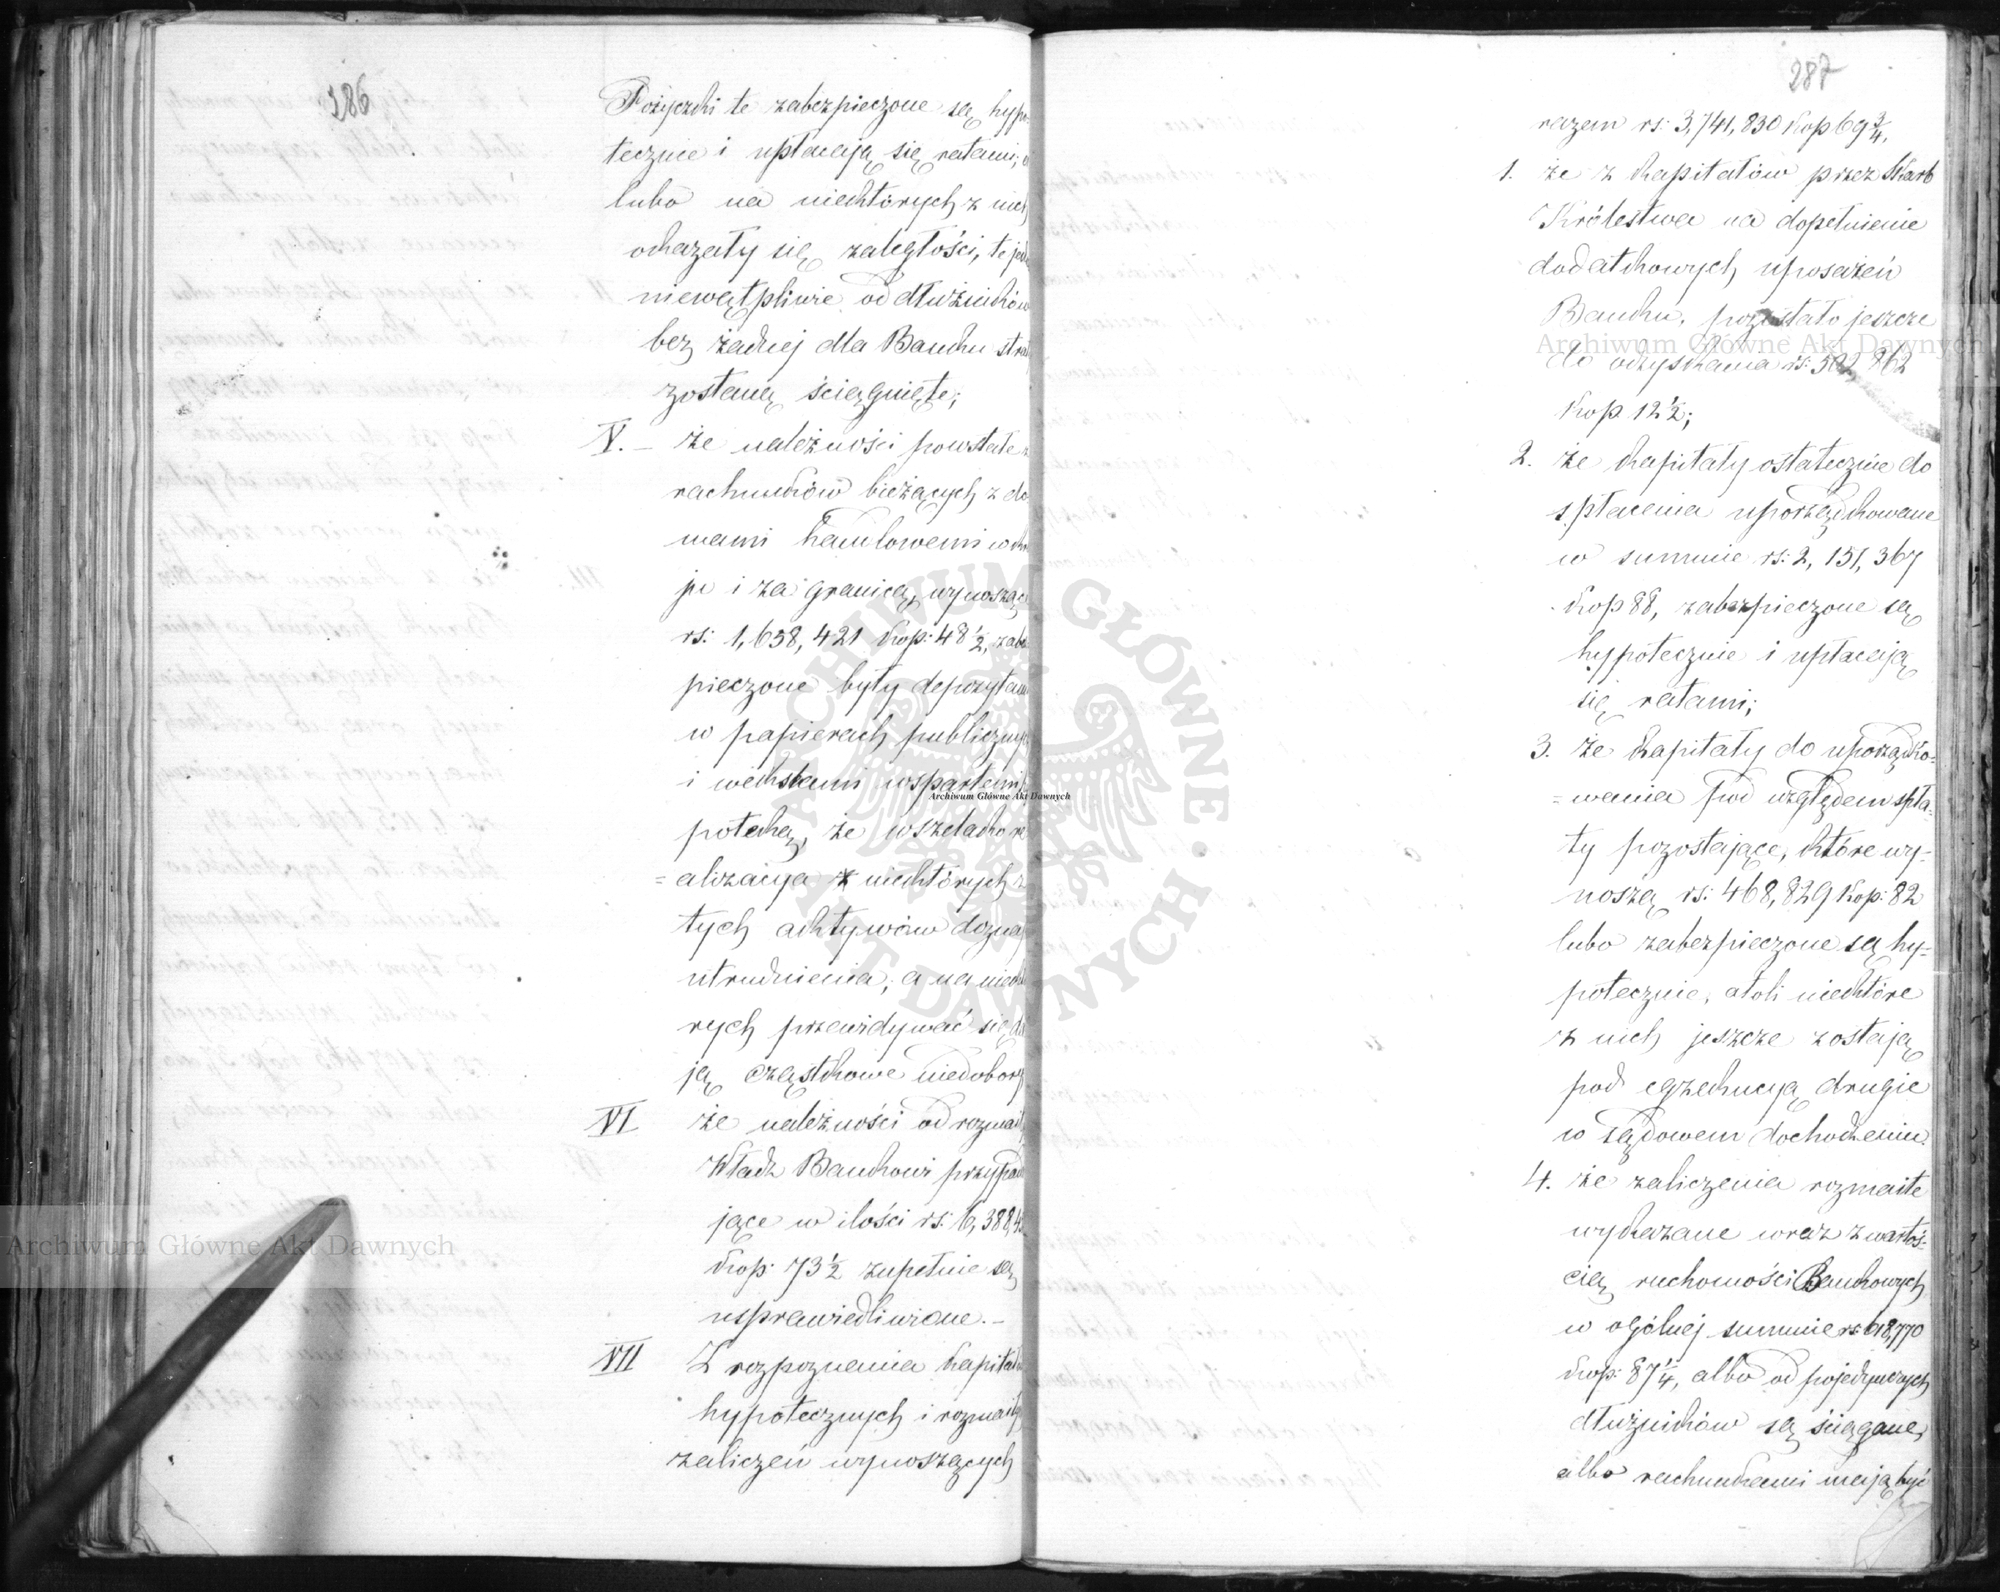 286
Pożyczki te zabezpieczone są hypo
tecznie i upłacają się ratami;
lubo na niektórych z nich
okazały się zaległości, te jed
niewątpliwie od dłużników
bez żadnej dla Banku strat
zostaną ściągnięte;
V. – że należności powstałe z
rachunków bieżących z do
mami handlowemi w kra
ju i za granicą, wynoszące
rs: 1,638,421 kop: 48 1/2, zabez
pieczone były depozytami
w papierach publicznych
i wekslami wspartemi hy
poteką, że wszelako re
= alizacya niektórych z
tych aktywów doznaje
utrudnienia, a na niektó
rych przewidywać się da
ją cząstkowe niedobory
VI że należności od rozmait
Władz Bankowi przypada
jące w ilości rs: 6,388,4
kop: 73 1/2 zupełnie są
usprawiedliwione. –
VII Z rozpoznania kapitałów
hypotecznych i rozmaitych
zaliczeń wynoszących
287
razem rs: 3,741,830 kop 69 3/4,
1. że z kapitałów przez Skarb
Królestwa na dopełnienie
dodatkowych uposażeń
Banku, pozostało jeszcze
do odzyskania rs: 502,862
kop 12 1/2;
2. że kapitały ostatecznie do
spłacenia uporządkowane
w summie rs: 2,151,367
kop 88, zabezpieczone są
hypotecznie i upłacają
się ratami;
3. że kapitały do uporządko-
= wania pod względem spła-
ty pozostające, które wy-
noszą rs: 468,829 kop: 82
lubo zabezpieczone są hy-
potecznie, atoli niektóre
z nich jeszcze zostają
pod egzekucyą drugie
w sądowem dochodzeniu.
4. że zaliczenia rozmaite
wykazane wraz z wartoś-
cią ruchomości Bankowych
w ogólnej summie rs: 618,770
kop: 87 1/4, albo od pojedynczych
dłużników są ściągane,
albo rachunkami mają być
Archiwum Główne Akt Dawnych
Archiwum Główne Akt Dawnych
Archiwum Główne Akt Dawnych
ARCHIWUM GŁÓWNE AKT DAWNYCH